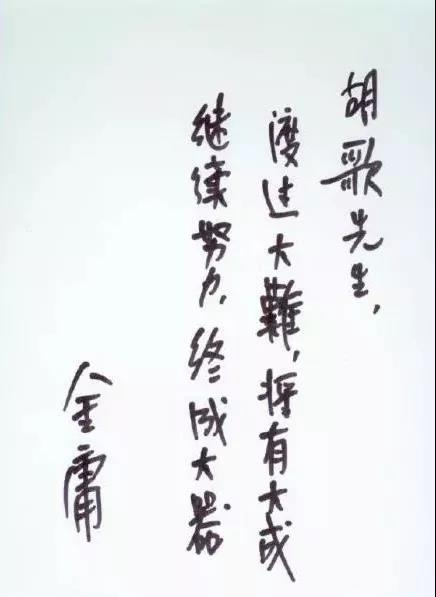 胡歌先生,
渡过大難,将有大成
继续努力,终成大器
金庸